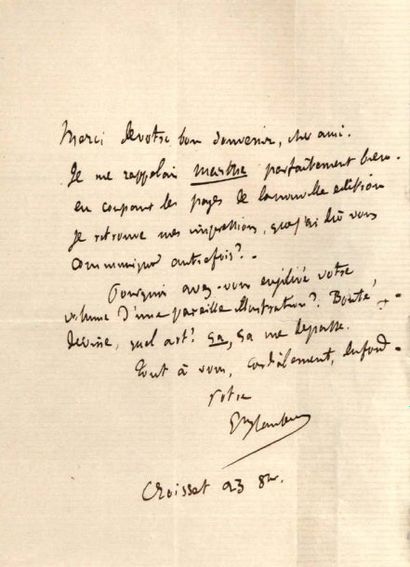 Merci de votre bon souvenir, cher ami.
Je me rappelais Marthe parfaitement bien.
en coupant les pages de la nouvelle édition
je retrouve mes impressions, que j'ai dû vous
communiquer autrefois?.
Pourquoi avez-vous enjolivé votre
volume d'une pareille illustration? Bonté
divine, quel art! Ça, ça me dépasse.
Tout à vous, cordialement,
votre
GveFlaubert
Croisset 23 8bre.